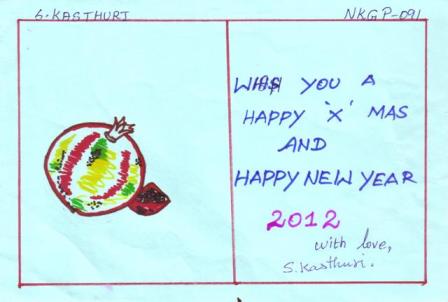 S. KASTHURI
NKGP-091
WISH YOU A
HAPPY 'X' MAS
AND
HAPPY NEW YEAR
2012
with love,
S. Kasthuri.